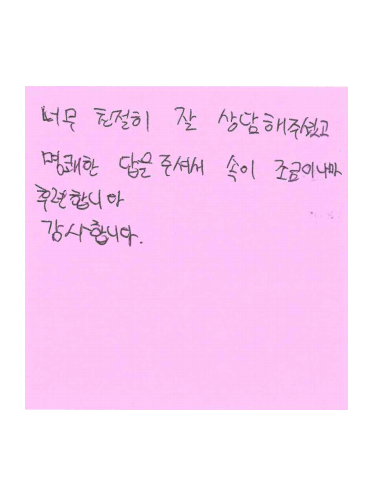 너무 친절히 잘 상담해주셨고
명쾌한 답을 주셔서 속이 조금이나마
후련합니아
감사합니다.